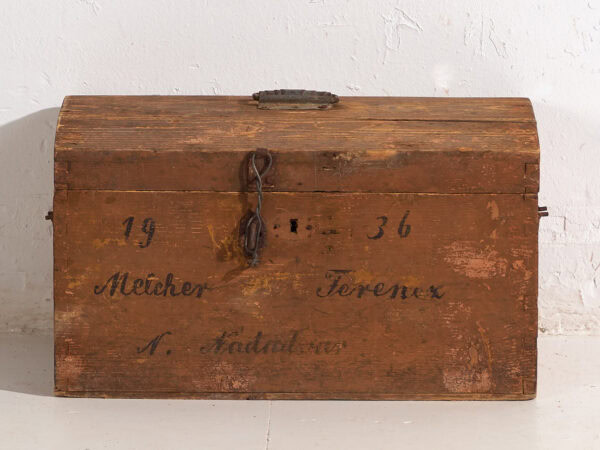 19 36
Melcher Ferencz
N. Nádudvar